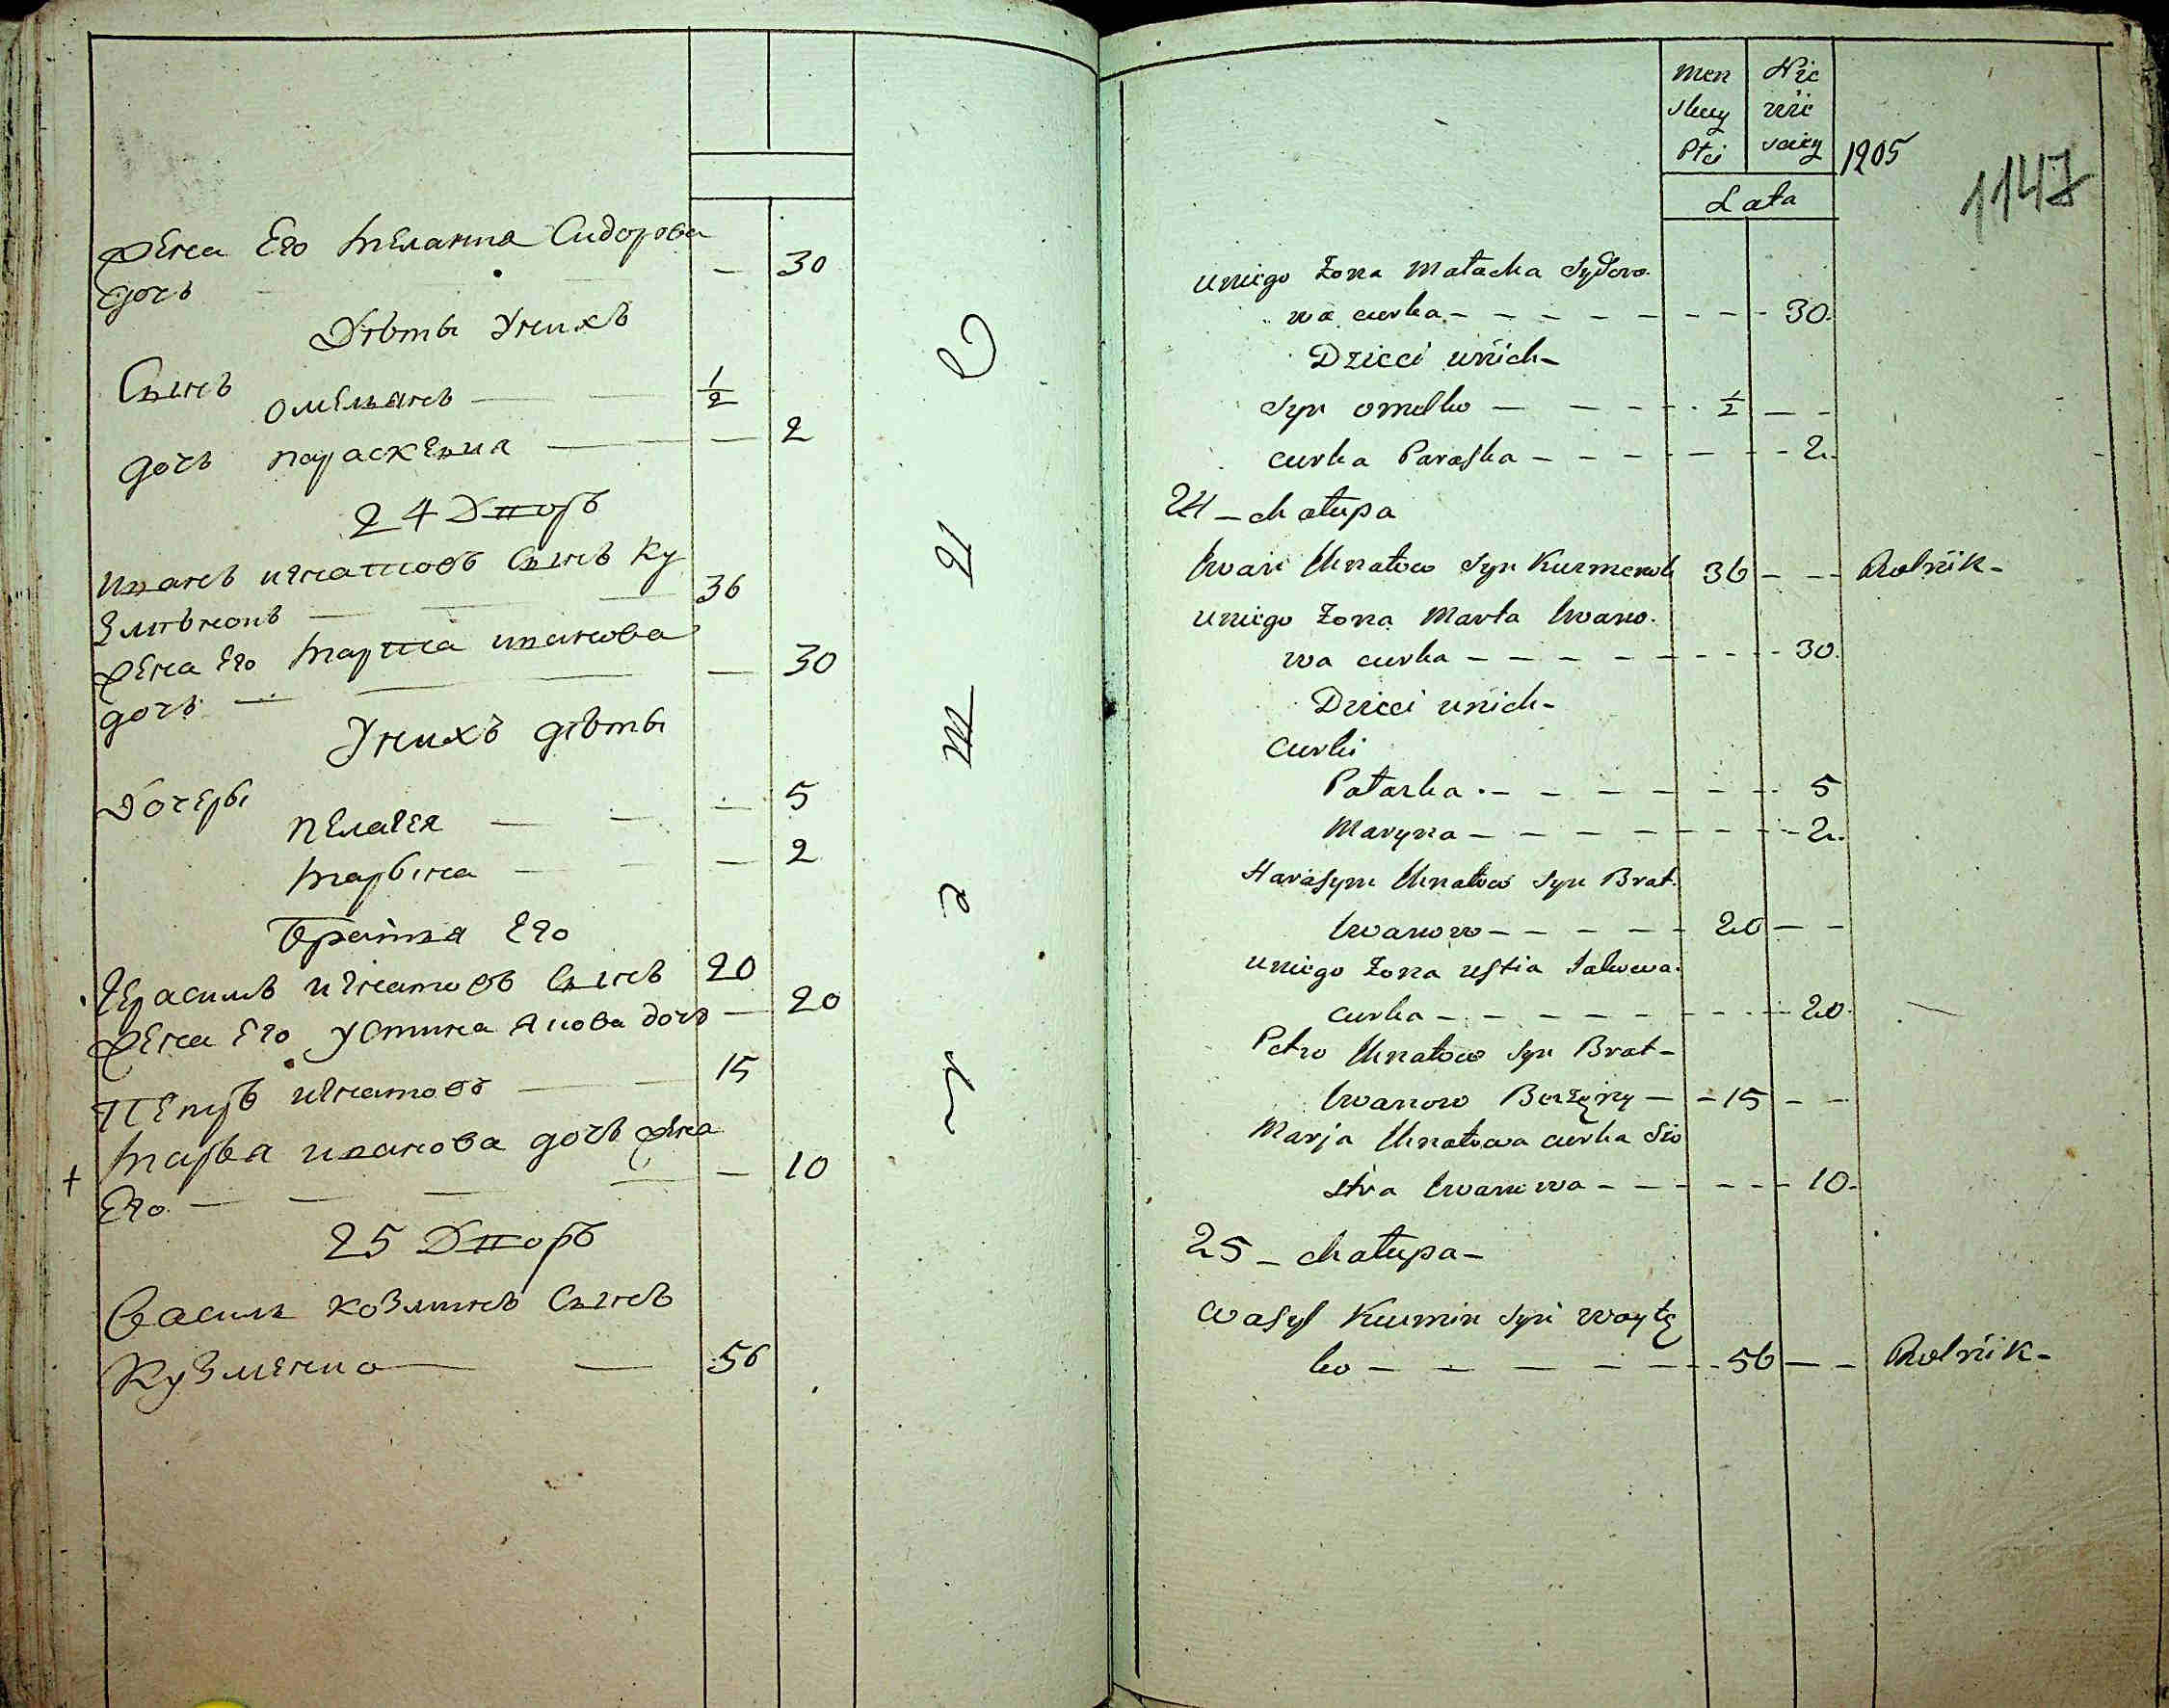 Жена Его Мелания Сидорова
дочь - 30
Дѣти У нихъ
Сынъ
Омельянъ 1/2
дочь параскевия - 2
24 Дворъ
Иванъ игнатовъ Сынъ Ку
змѣнонъ 36
Жена Его Марта иванова
дочь - 30
У нихъ дѣти
Дочеры
пелагея - 5
Марына - 2
братья Его
Герасимъ игнатовъ Сынъ 20
Жена Его Устина дочь - 20
Петръ игнатовъ 15
Марья иванова дочь жена
Его - 10
25 Дворъ
Василь козминъ Сынъ
Кузменко 56
Men Nie
skuy wie
Ptci sciey 1205
Lata
1147
u niego żona Małacka Sydoro
wa curka - 30
Dzieci u nich
Syn omelko - 1/2
curka Paraska - 2
24 - chałupa
Iwan Ihnatow Syn Kuzmenok 36 - Rolnik -
u niego żona Marta Iwano
wa curka - 30
Dzieci u nich
Curki
Pałazka - 5
Maryna - 2
Harasym Ihnatow Syn Brat
Iwanow - 20
u niego żona ustia
curka - 20
Petro Ihnatow Syn Brat -
Iwanow - 15
Marja Ihnatowa curka Sio
stra Iwanowa - 10
25 - chałupa -
Wasyl Kuzmin Syn
ko - 56 - Rolnik -